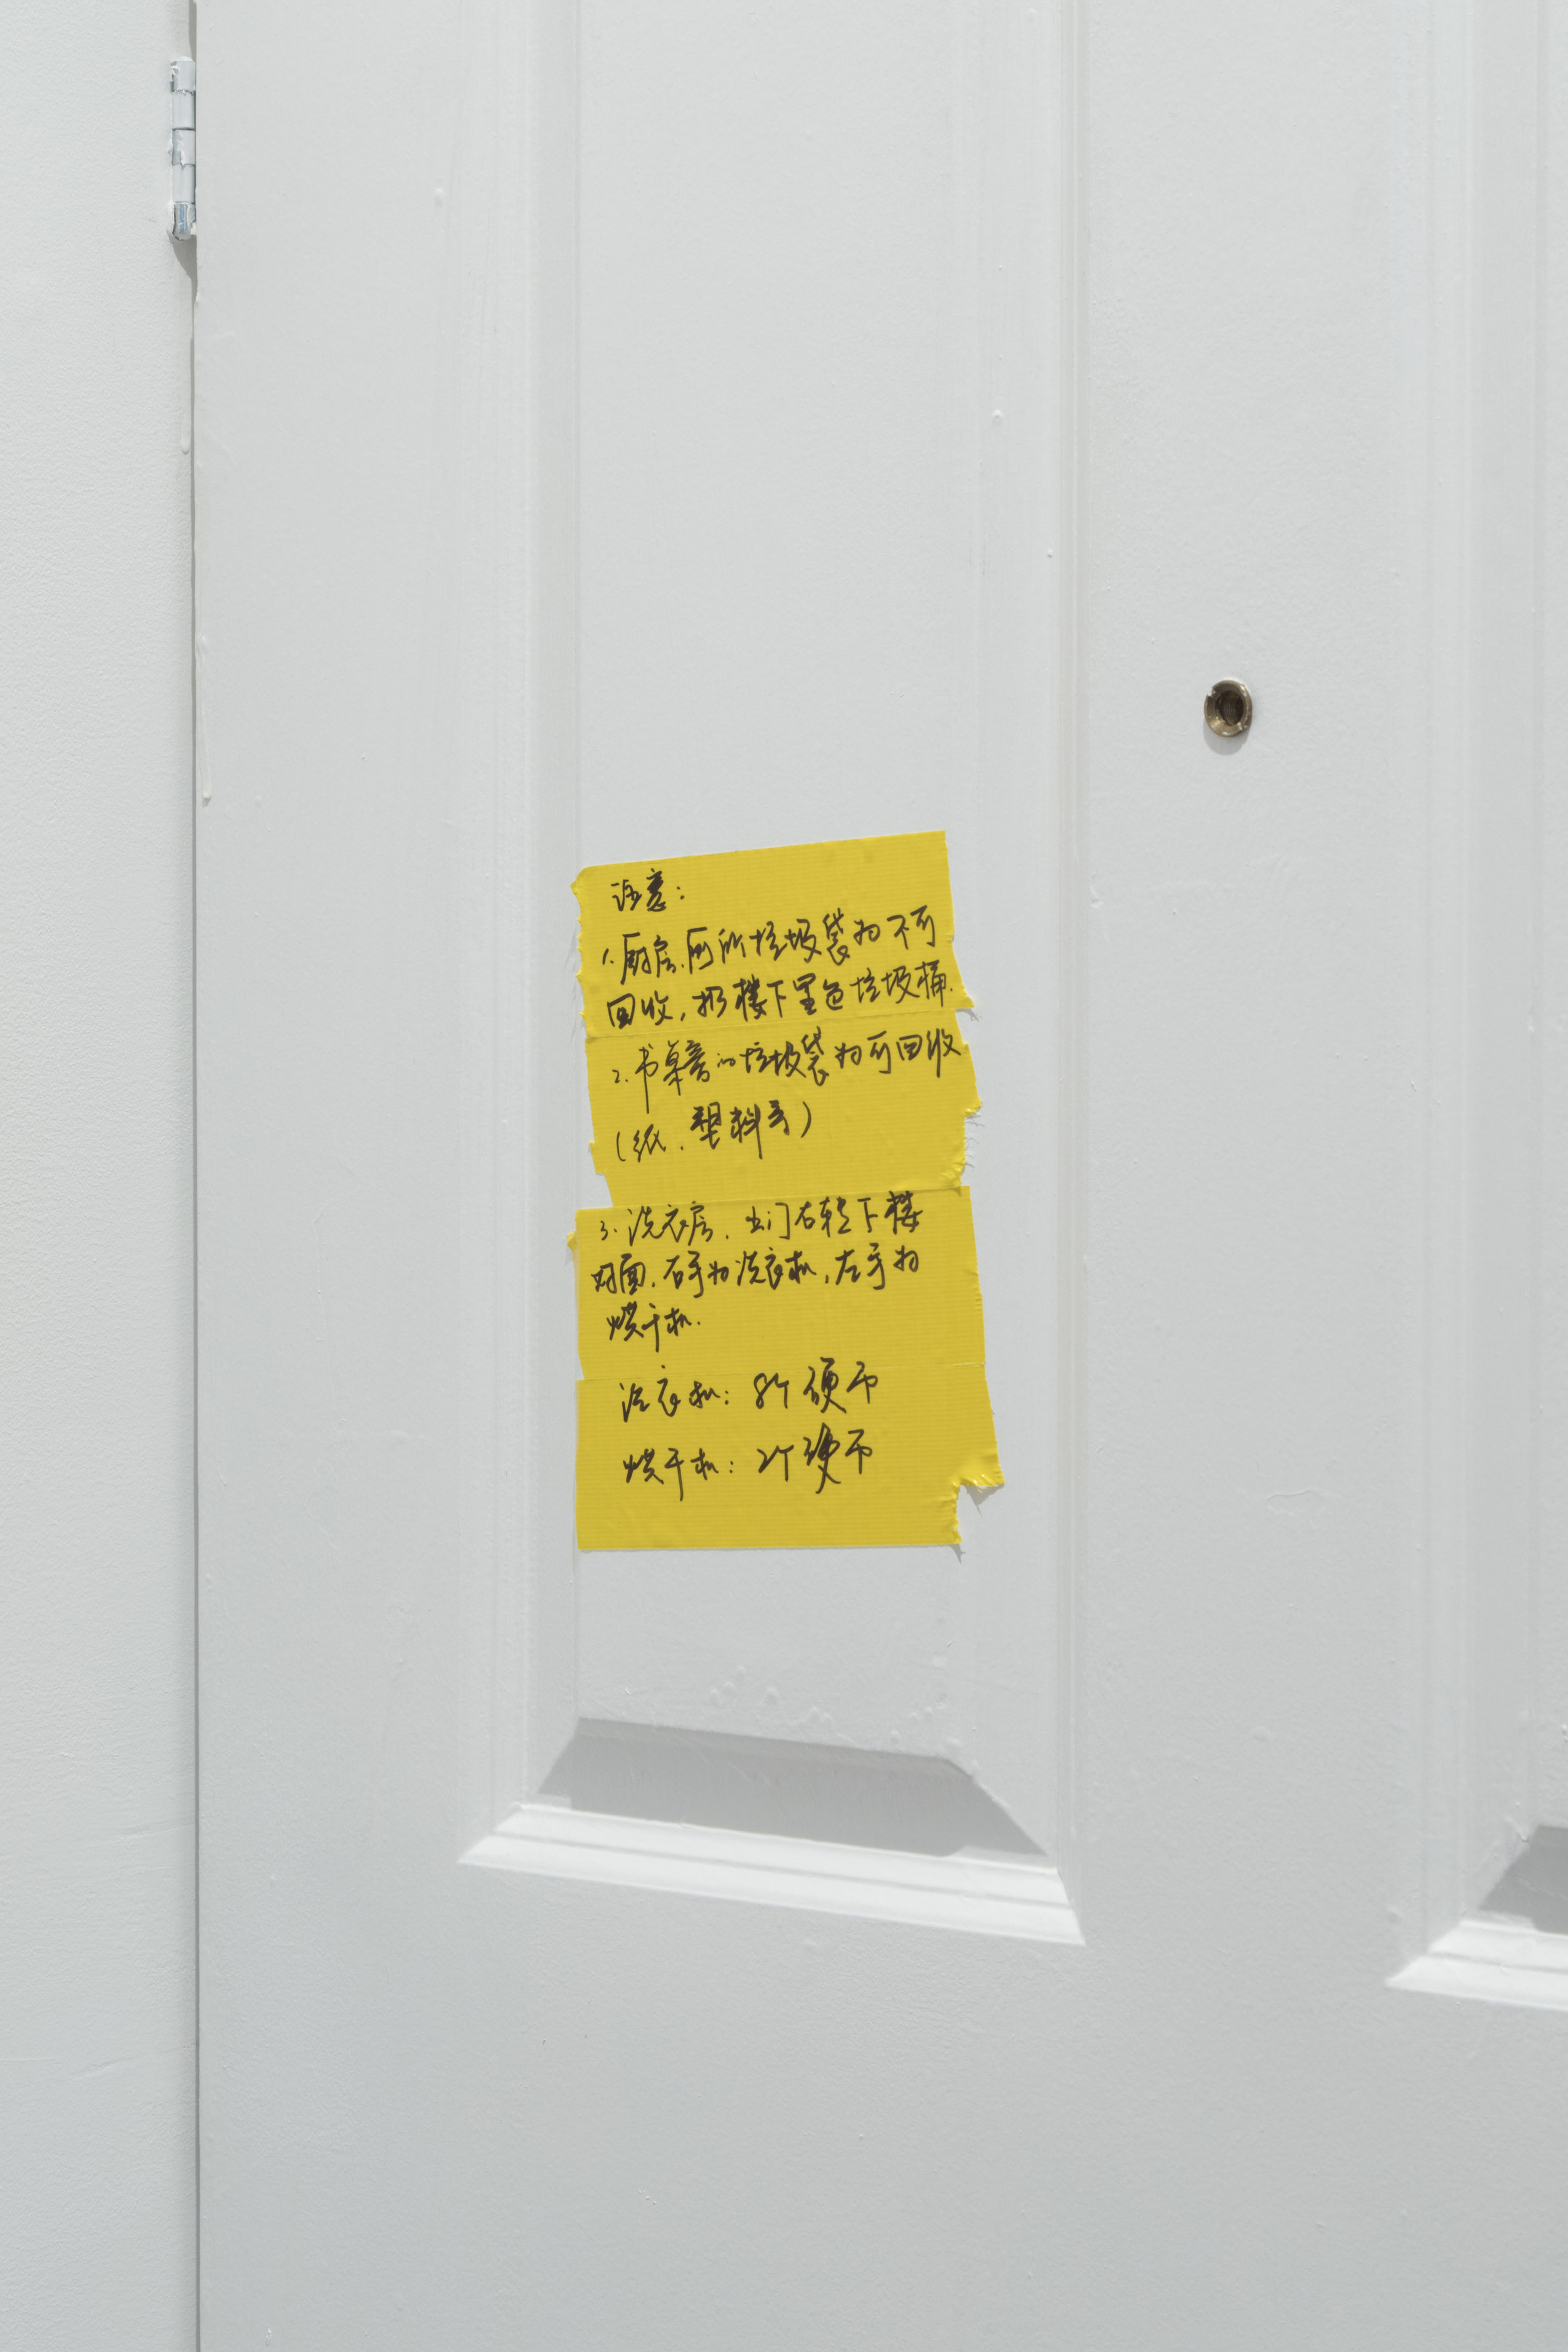 注意:
1.厨房.厕所垃圾袋为不可
回收,扔楼下黑色垃圾桶.
2.书桌旁的垃圾袋为可回收
(纸.塑料等)
3.洗衣房.出门右转下楼
对面.右手为洗衣机,左手为
烘干机.
洗衣机:8个硬币
烘干机:2个硬币